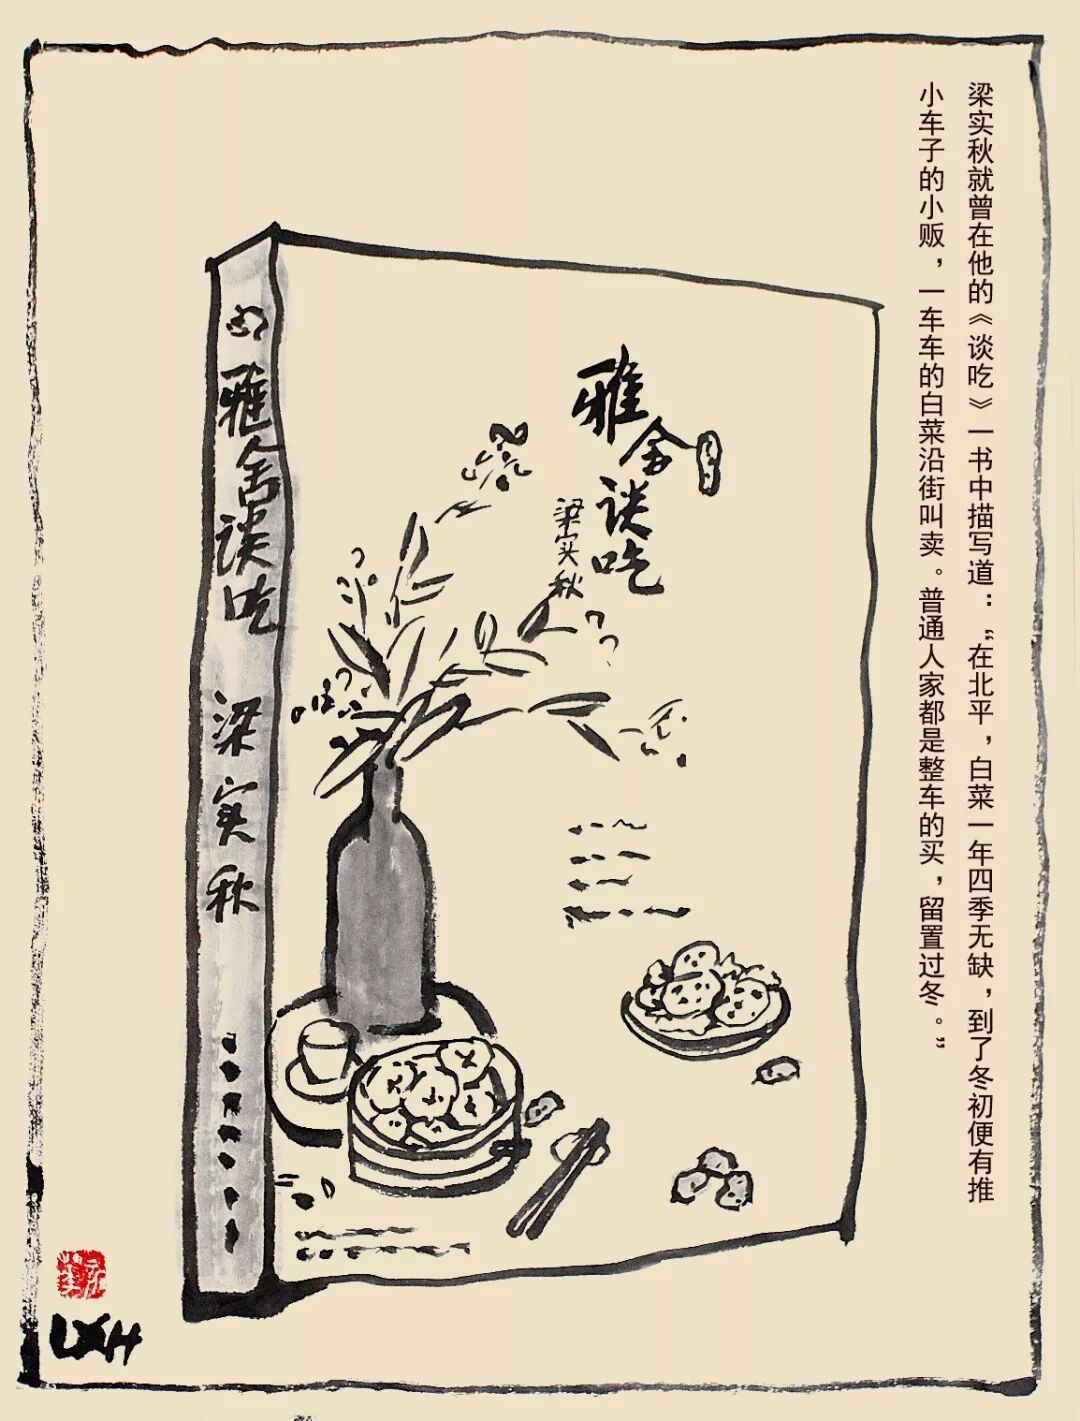 梁实秋就曾在他的《谈吃》一书中描写道：“在北平，白菜一年四季无缺，到了冬初便有推
小车子的小贩，一车车的白菜沿街叫卖。普通人家都是整车的买，留置过冬。”
雅舍谈吃
梁实秋
雅舍谈吃
梁实秋
LXH